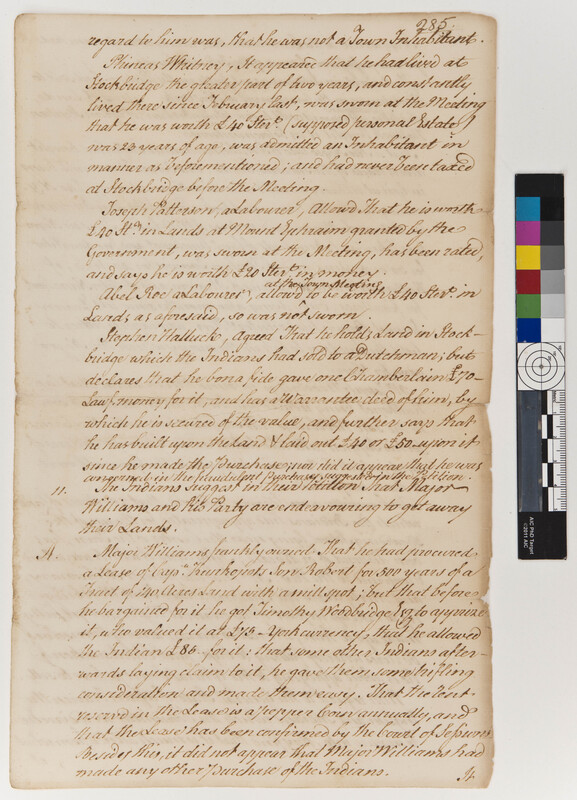 285.
regard to him was, that he was not a Town Inhabitant.
Phineas Whitney, It appeared that he had lived at
Stockbridge the greater part of two years, and constantly
lived there since February last, was sworn at the Meeting
that he was worth £40 Sterg. (supposed personal Estate)
was 23 years of age, was admitted an Inhabitant in
manner as beforementioned; and had never been taxed
at Stockbridge before the Meeting.
Joseph Patterson, a Labourer, Allow'd That he is worth
£40 St. in Lands at Mount Ephraim granted by the
Government, was sworn at the Meeting, has been rated,
and says he is worth £20 Sterg. in money.
at the Town Meeting
Abel Roe a Labourer, allowed to be worth £40 Sterg. in
Land; as aforesaid, so was not sworn.
Stephen Nalluck, agreed That he holds Land in Stock-
bridge which the Indians had sold to a Dutchman; but
declares that he bona fide gave one Chamberlain £70-
Lawf. money for it, and has a Warrantee deed of him, by
which he is secured of the value, and further says that
he has built upon the Land & laid out £40 or £50 upon it
since he made the Purchase; nor did it appear that he was
concerned in the fraudulent purchase suggested in the Petition.
11. The Indians suggest in their Petition That Major
Williams and his Party are endeavouring to get away
their Lands.
A. Major Williams frankly owned That he had procured
a Lease of Capn. Son Robert for 500 years of a
Tract of 140 Acres Land with a mill spot; but that before
he bargained for it he got Timothy Woodbridge Esq. to apprize
it, who valued it at £75- York currency, that he allowed
the Indian £86. for it: that some other Indians after-
wards laying claim to it, he gave them some trifling
consideration and made them easy. That the Rent
reserved in the Lease is a pepper Corn annually, and
that the Lease has been confirmed by the Court of Sessions
Besides this, it did not appear that Major Williams had
made any other Purchase of the Indians.